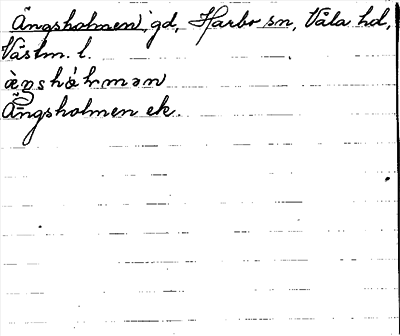 Ängsholmen, gd, Harbo sn, Våla hd,
Västm. l.
Ängsholmen ek.